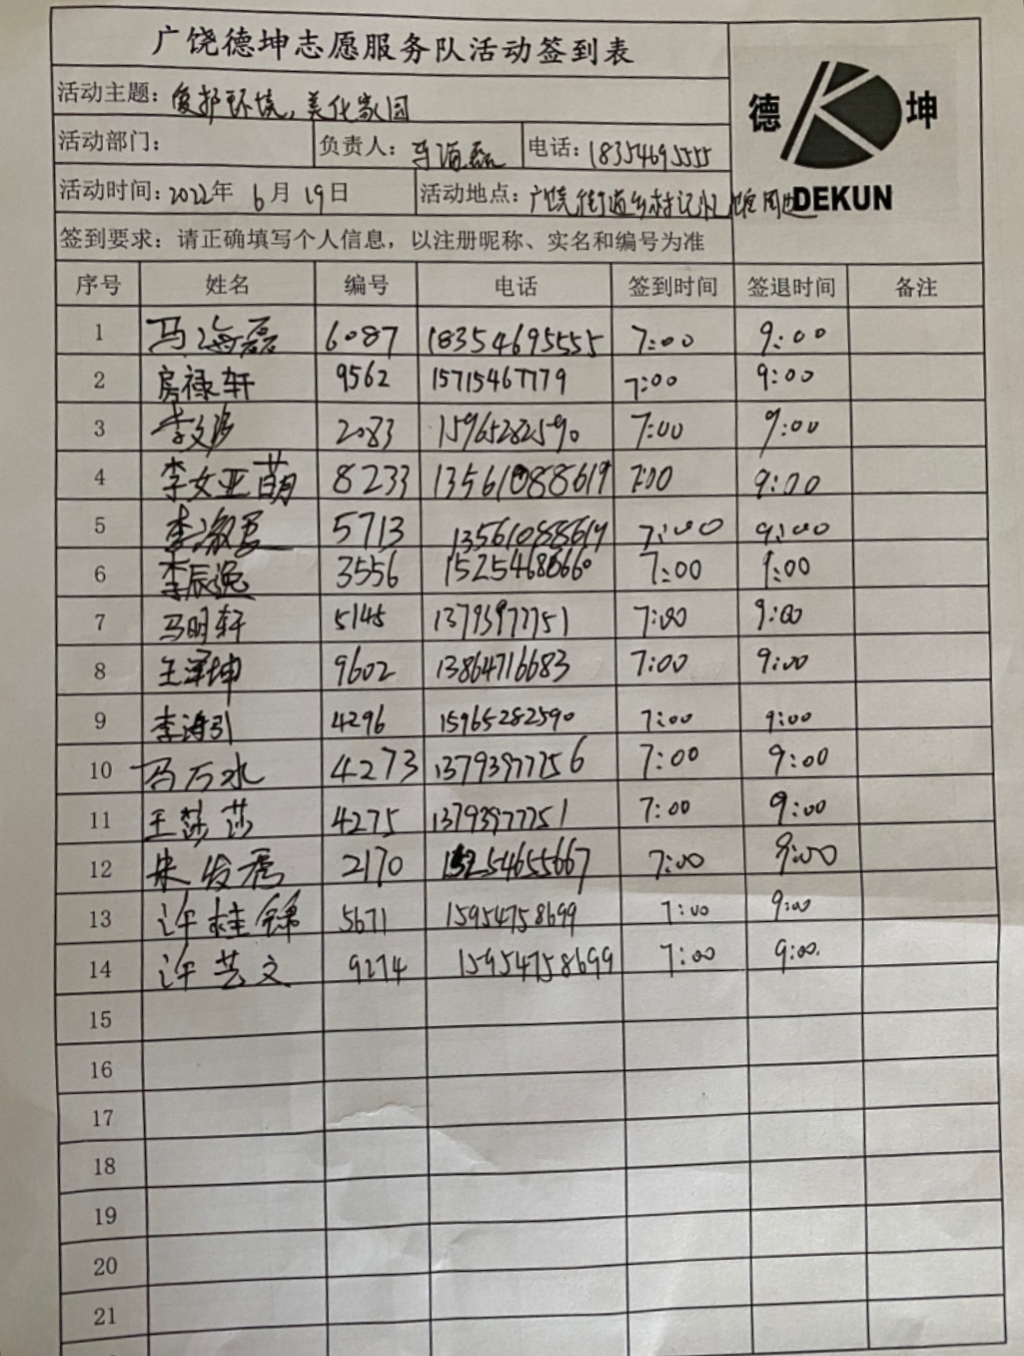 广饶德坤志愿服务队活动签到表
德 坤
DEKUN
活动主题: 爱护环境、美化家园
活动部门: 负责人: 马海磊 电话: 18354695555
活动时间: 2022年 6月 19日 活动地点: 广饶街道乡村记忆 周边
签到要求: 请正确填写个人信息,以注册昵称、实名和编号为准
序号 姓名 编号 电话 签到时间 签退时间 备注
1 马海磊 6087 18354695555 7:00 9:00
2 房禄轩 9562 15715467779 7:00 9:00
3 李文涉 2083 15965282590 7:00 9:00
4 李女亚萌 8233 13561088619 7:00 9:00
5 李 5713 13561088619 7:00 9:00
6 李辰逸 3556 15254686660 7:00 9:00
7 马明轩 5145 13793977751 7:00 9:00
8 王泽坤 9602 13864716683 7:00 9:00
9 李涛引 4296 15965282590 7:00 9:00
10 马万水 4273 13793977756 7:00 9:00
11 王莎莎 4275 13793977751 7:00 9:00
12 朱发秀 2170 15254655667 7:00 9:00
13 许桂锦 5671 15954758699 7:00 9:00
14 许芸文 9274 15954758699 7:00 9:00.
15
16
17
18
19
20
21